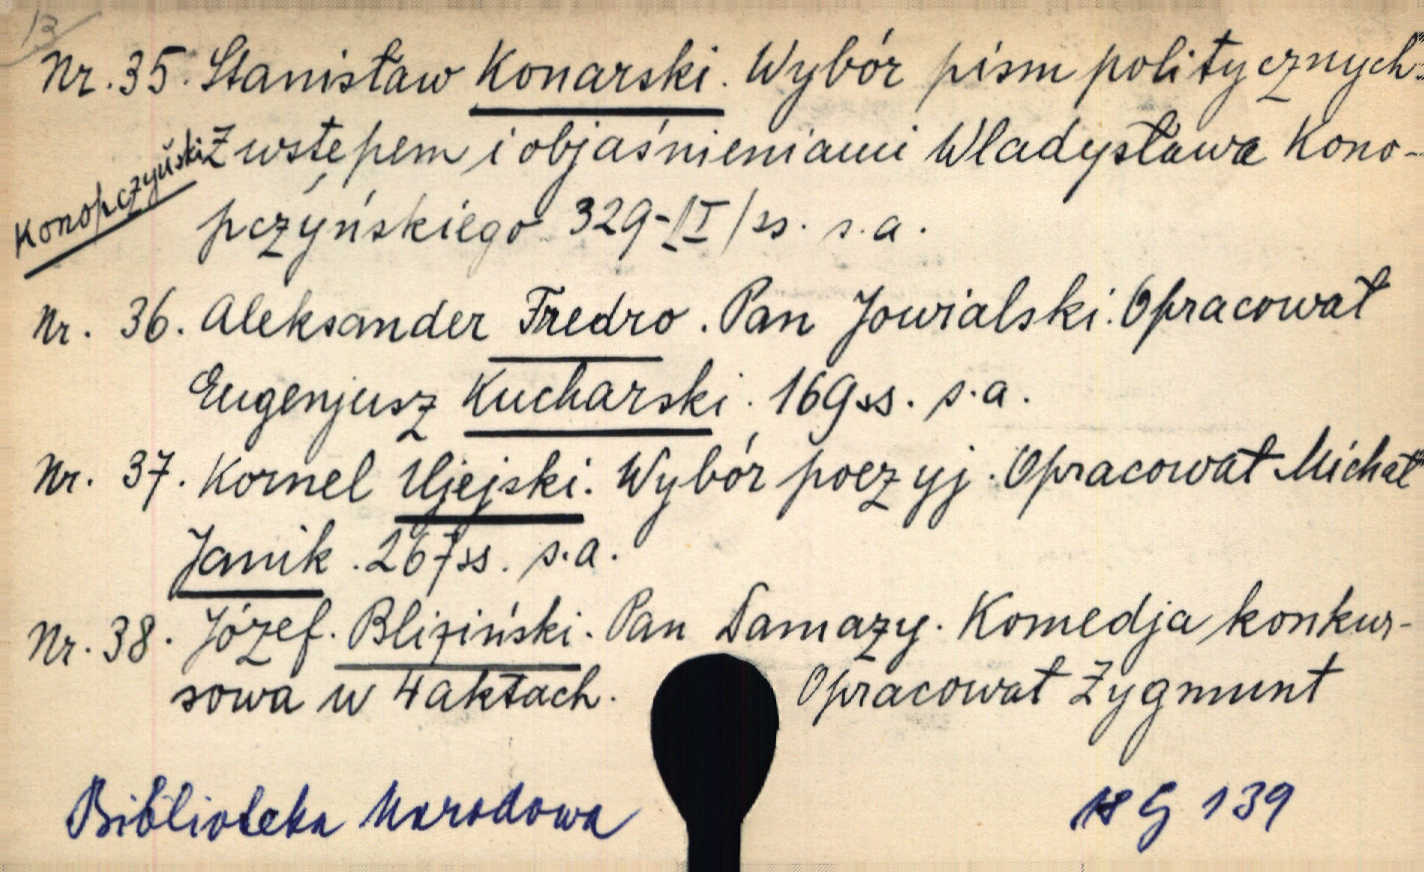 13
Nr. 35. Stanisław Konarski. Wybór pism politycznych.
Konopczyński
Z wstępem i objaśnieniami Władysława Kono-
pczyńskiego 329-IV/ss. s.a.
Nr. 36. Aleksander Fredro. Pan Jowialski. Opracował
Eugenjusz Kucharski. 169 ss. s.a.
Nr. 37. Kornel Ujejski. Wybór poezyj. Opracował Michał
Janik. 267 ss. s.a.
Nr. 38. Józef. Bliziński. Pan Damazy. Komedja konkur-
sowa w 4 aktach. Opracował Zygmunt
Biblioteka Narodowa
G 139